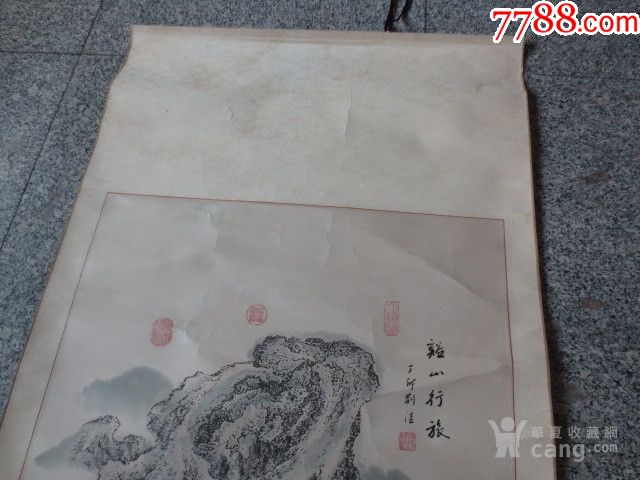 7788.com
谿山行旅
丁卯刘洁
華夏收藏網
cang.com